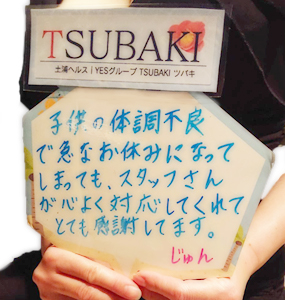 TSUBAKI
土浦ヘルス | YESグループ TSUBAKI ツバキ
子供の体調不良
で急なお休みになって
しまっても、スタッフさん
が心よく対応してくれて
とても感謝してます。
じゅん